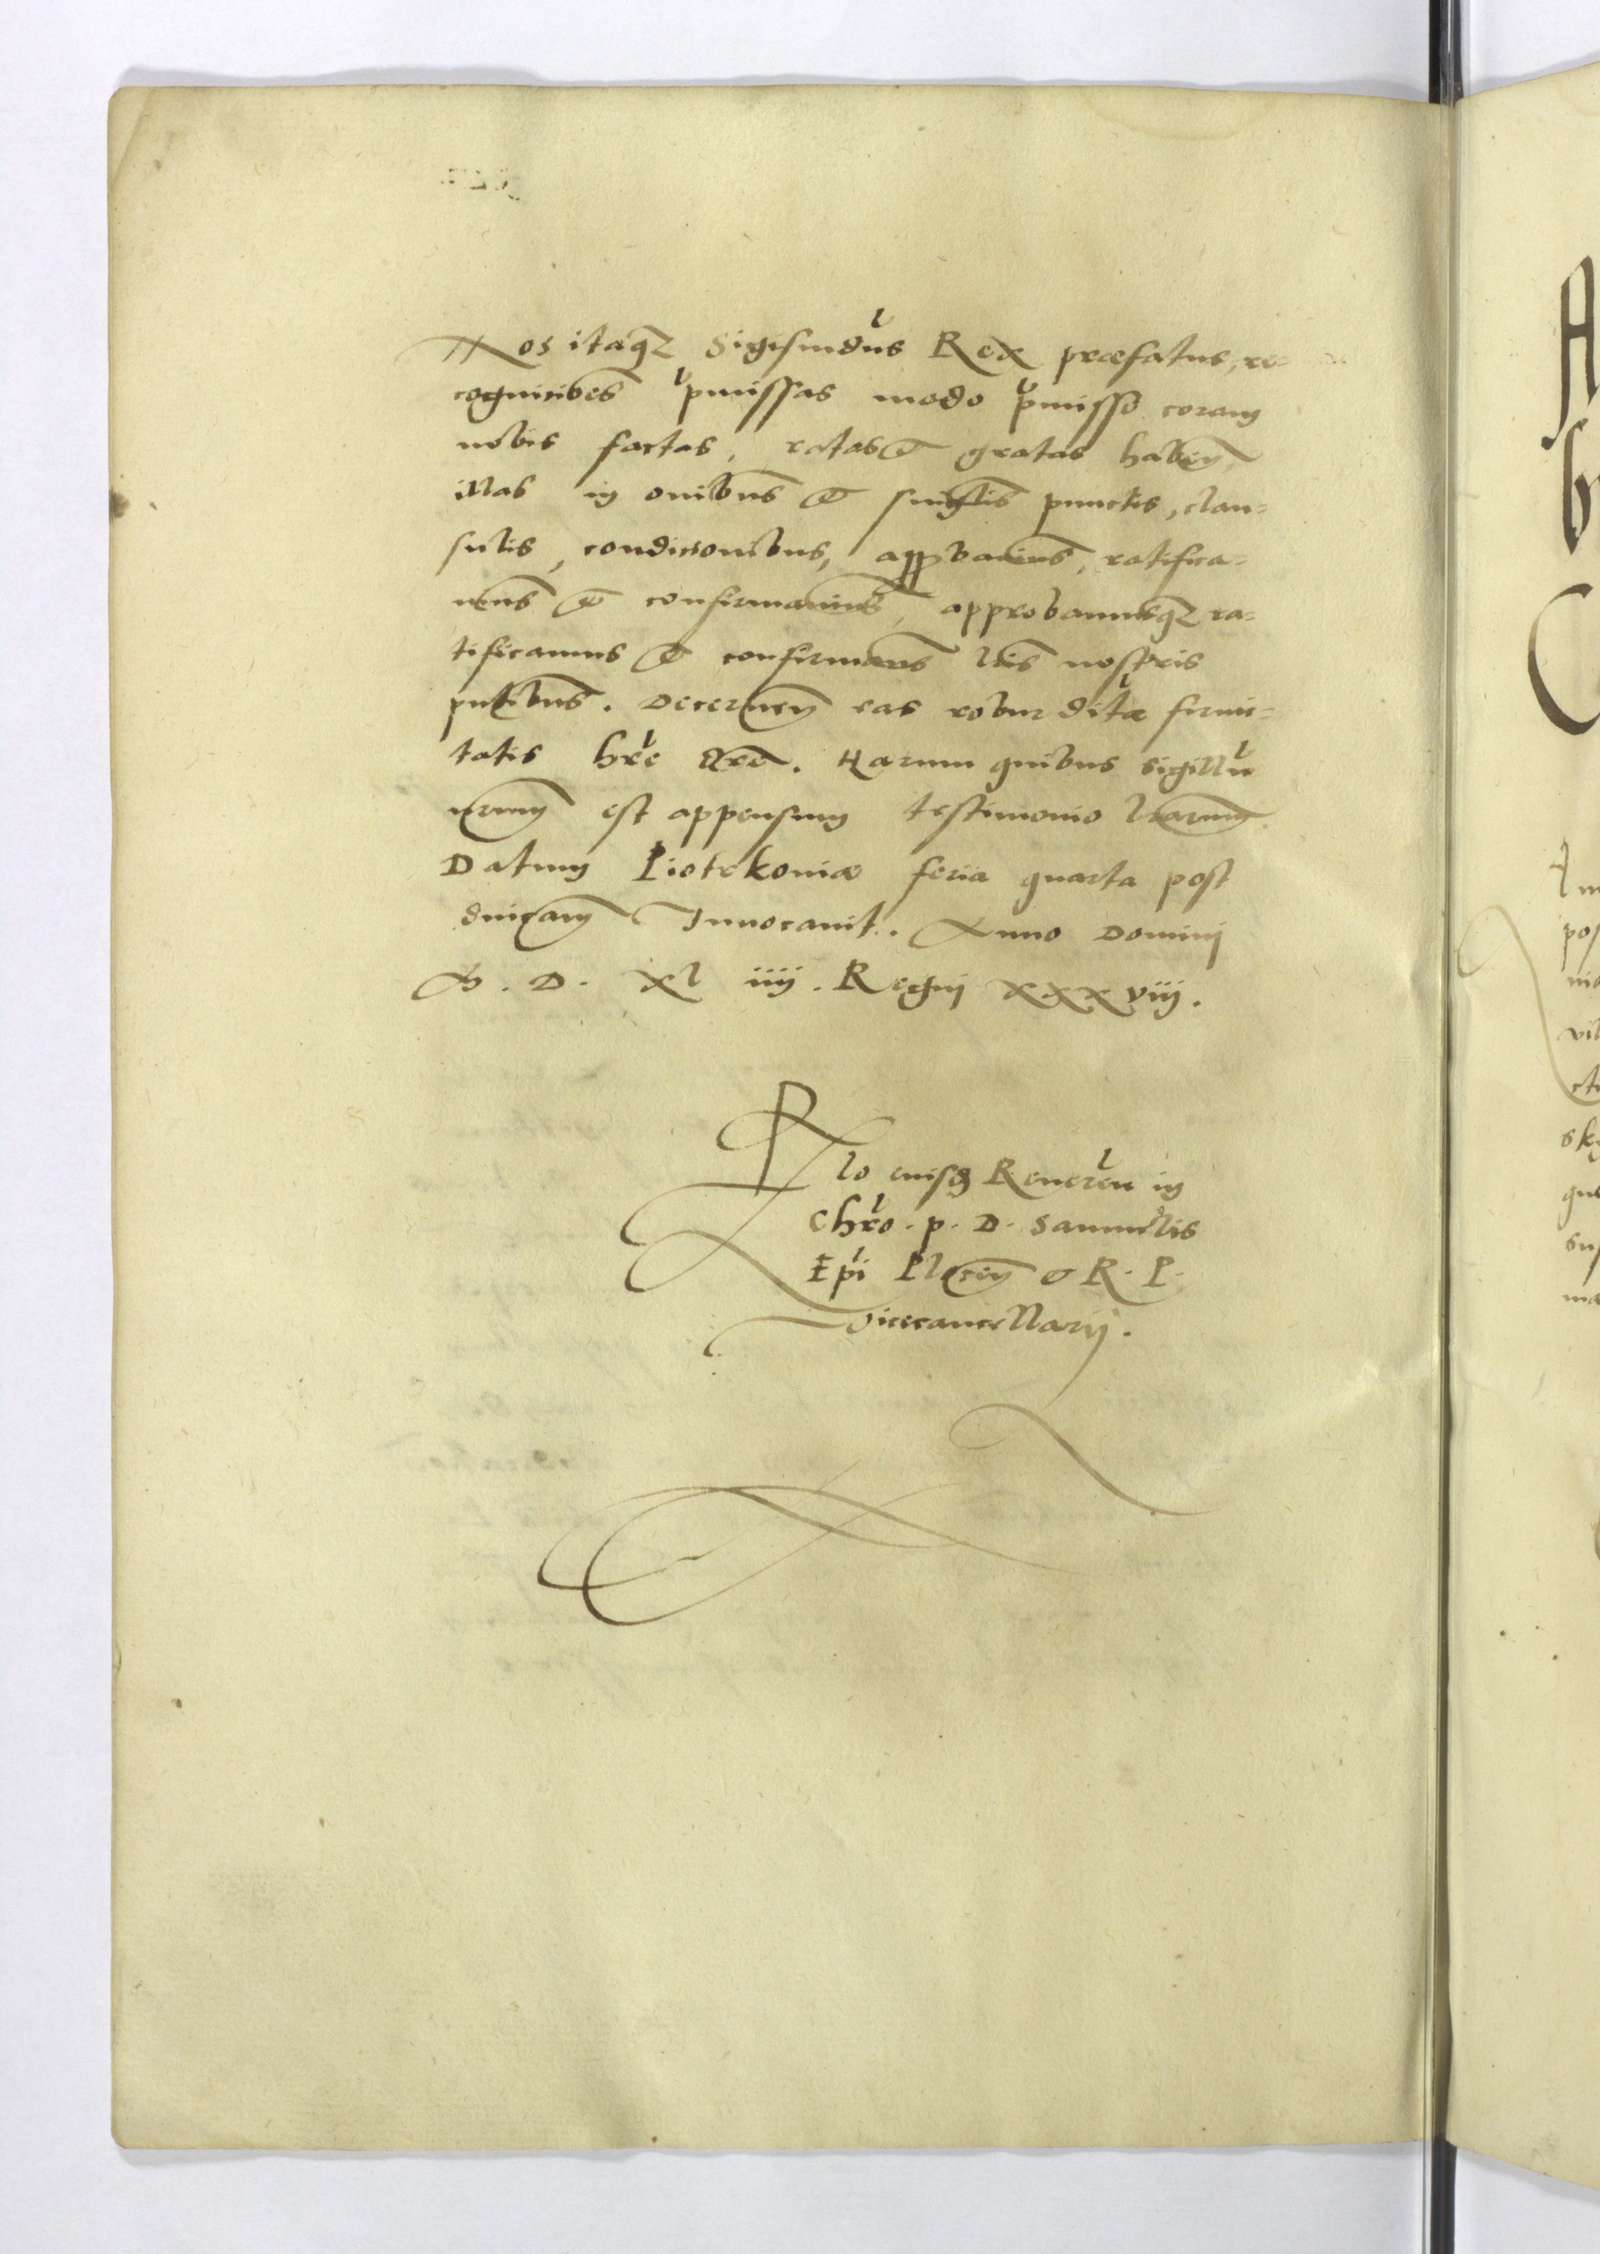 Nos itaq₃ Sigismdus Rex præfatus, re-
cognitiões pmissas modo pmisso coram
nobis factas, ratas & gratas habeñ
illas in oñibus & singlis punctis, clau-
sulis, condicionibus, approbavimus, ratifica-
vims & confirmavimus, approbamusq₃ ra-
tificamus & confirmams lris nostris
pntibus. Decerneñ eas robur debitæ firmi-
tatis hre &re. Harum quibus sigillu
nrum est appensum testimonio lrarum
Datum Piotrkoviæ feria quarta post
dnicam Invocavit. Anno Domini
M. D. XL iiij. Regni XXX viij.
Rlo eiusd Reveren in
Chro. p. D. Samuelis
Epi Plocen & R. P.
Vicecancellarij.
A